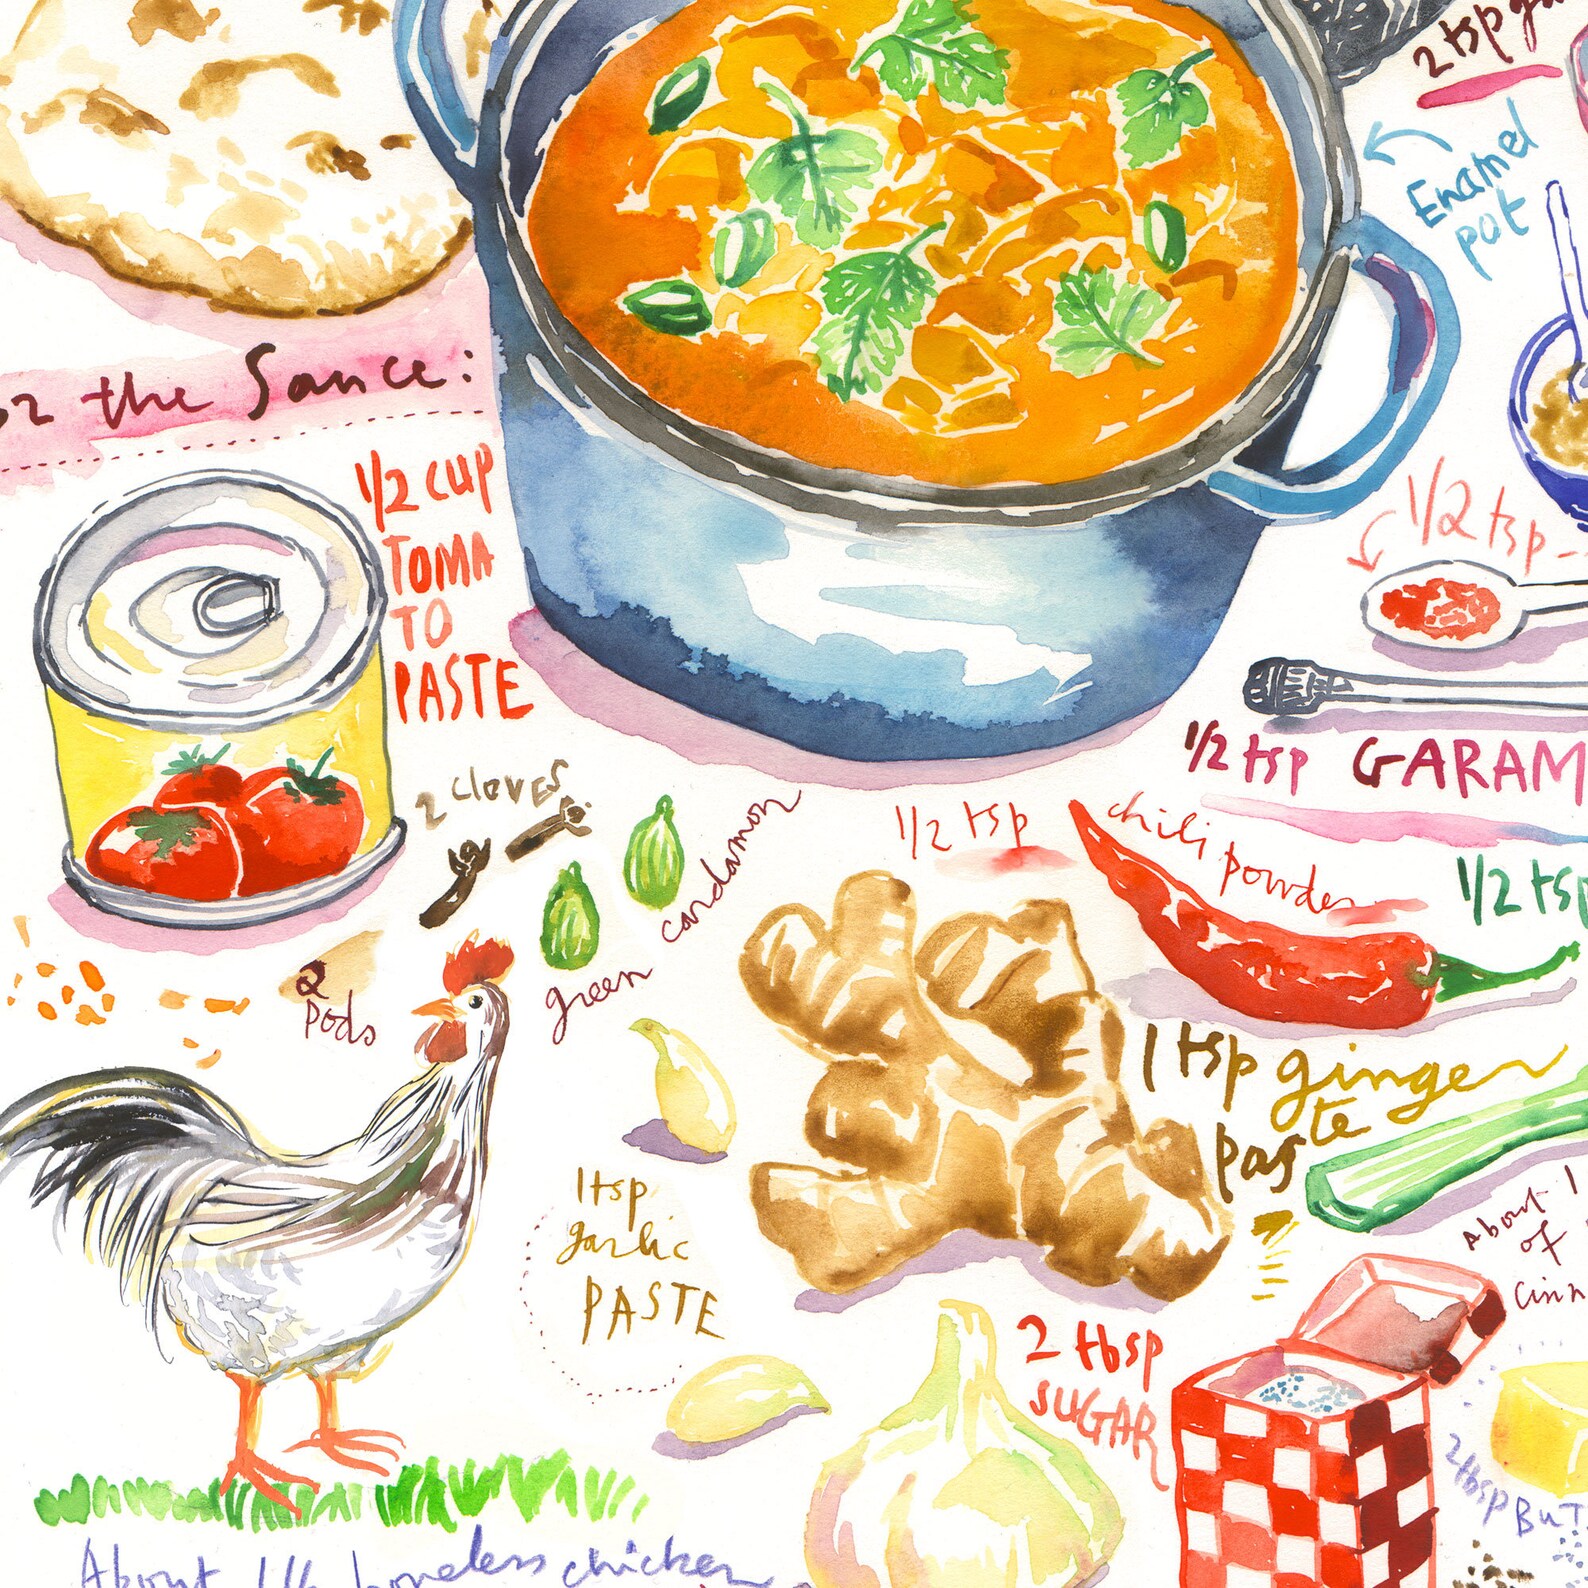 2 tsp
Enamel
pot
the Sauce:
1/2 CUP
TOMA
TO
PASTE
1/2 tsp
1/2 tsp GARAM
2 cloves
cardamon
green
2
pods
1/2 tsp
chili powder
1/2 tsp
1 tsp ginger
paste
1 tsp
garlic
PASTE
About 1
of
Cinn
2 tbsp
SUGAR
2 tbsp BUT
About 1 lb boneless chicken